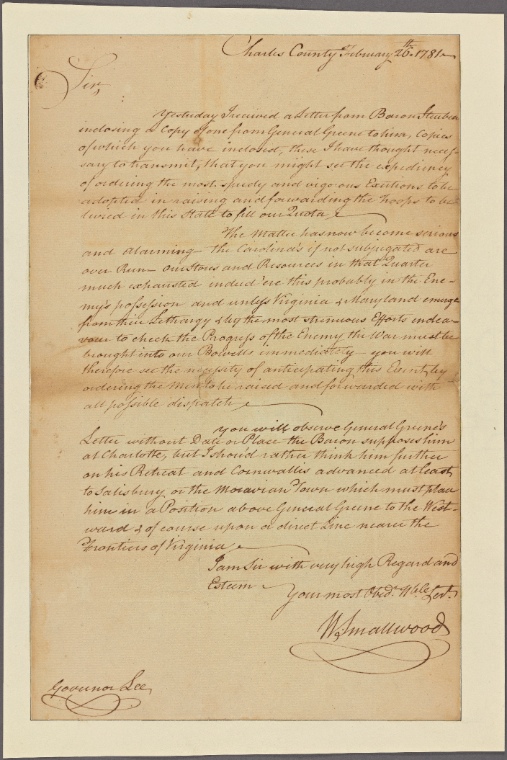 Charles County February 26th. 1781
Sir,
Yesterday I received a Letter from Baron Steuben
inclosing a Copy of one from General Greene to him, Copies
of which you have inclosed, these I have thought neces-
sary to transmit, that you might see the expediency
of ordering the most speedy and vigorous Exertions to be
adopted in raising and forwarding the Troops to be
derived in this State to fill our Quota
The Matter has now become serious
and alarming the Carolina's if not subjugated are
over Run our Stores and Resources in that Quarter
much exhausted indeed 'ere this probably in the Ene-
my's possession and unless Virginia & Maryland emerge
from their Lethargy & by the most strenuous Efforts endea-
vour to check the Progress of the Enemy the War must be
brought into our Bowells immediately you will
therefore see the necessity of anticipating this Event by
ordering the Men to be raised and forwarded with
all possible dispatch
You will observe General Greene's
Letter without Date or Place the Baron supposes him
at Charlotte, but I should rather think him further
on his Retreat and Cornwallis advanced at least
to Salisbury or the Moravian Town which must place
him in a Position above General Greene to the West-
ward & of course upon a direct Line nearer the
Frontiers of Virginia
I am Sir with very high Regard and
Esteem
Your most Obedt. Hble Servt.
W. Smallwood
Governor Lee